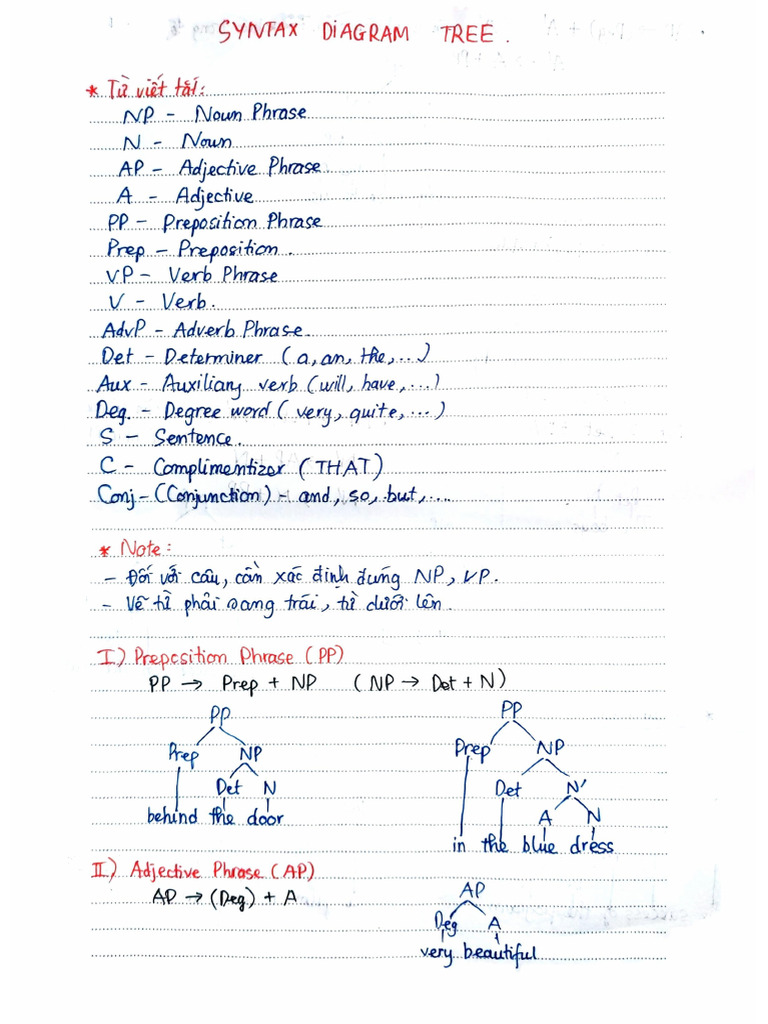 SYNTAX DIAGRAM TREE.
* Từ viết tắt:
NP - Noun Phrase
N - Noun
AP - Adjective Phrase
A - Adjective
PP - Preposition Phrase
Prep - Preposition.
VP - Verb Phrase
V - Verb.
AdvP - Adverb Phrase.
Det - Determiner (a, an, the, ...)
Aux - Auxiliary verb (will, have, ...)
Deg. - Degree word (very, quite, ...)
S - Sentence.
C - Complimentizer (THAT)
Conj - (Conjunction) - and, so, but, ....
* Note:
- Đối với câu, cần xác định đúng NP, VP.
- Vẽ từ phải sang trái, từ dưới lên.
I) Preposition Phrase (PP)
PP → Prep + NP ( NP → Det + N )
PP
Prep NP
Det N
behind the door
PP
Prep NP
Det N'
A N
in the blue dress
II) Adjective Phrase (AP)
AP → (Deg) + A
AP
Deg A
very beautiful